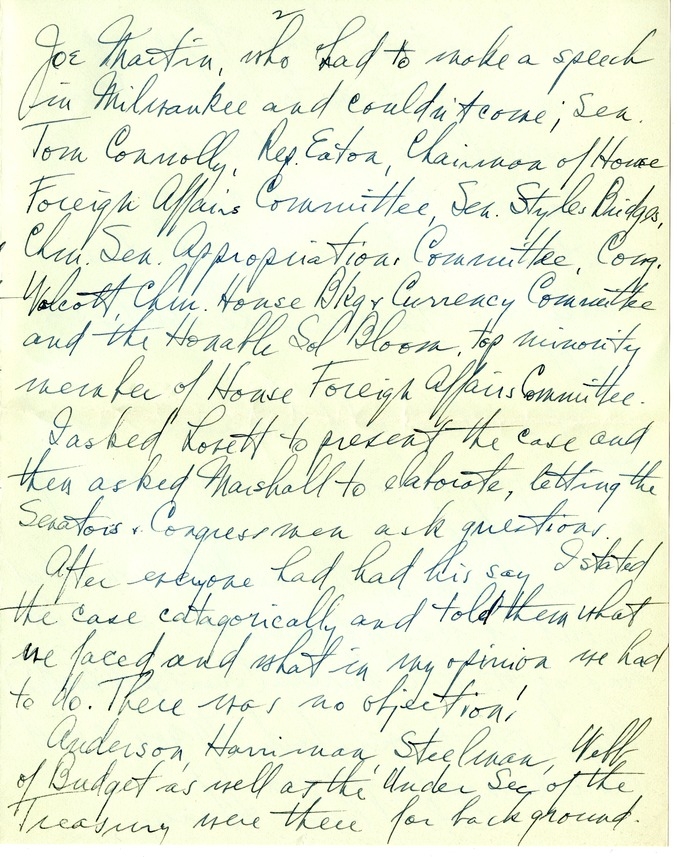 2
Joe Martin, who had to make a speech
in Milwaukee and couldn't come; Sen.
Tom Connolly, Rep. Eaton, Chairman of House
Foreign Affairs Committee, Sen. Styles Bridges,
Chm. Sen. Appropriations Committee, Cong.
Wolcott, Chm. House Bkg & Currency Committee
and the Honable Sol Bloom, top minority
member of House Foreign Affairs Committee.
I asked Lovett to present the case and
then asked Marshall to elaborate, letting the
Senators & Congressmen ask questions.
After everyone had had his say I stated
the case catagorically and told them what
we faced and what in my opinion we had
to do. There was no objection!
Anderson, Harriman, Steelman, Webb
of Budget as well as the Under Sec. of the
Treasury were there for background.